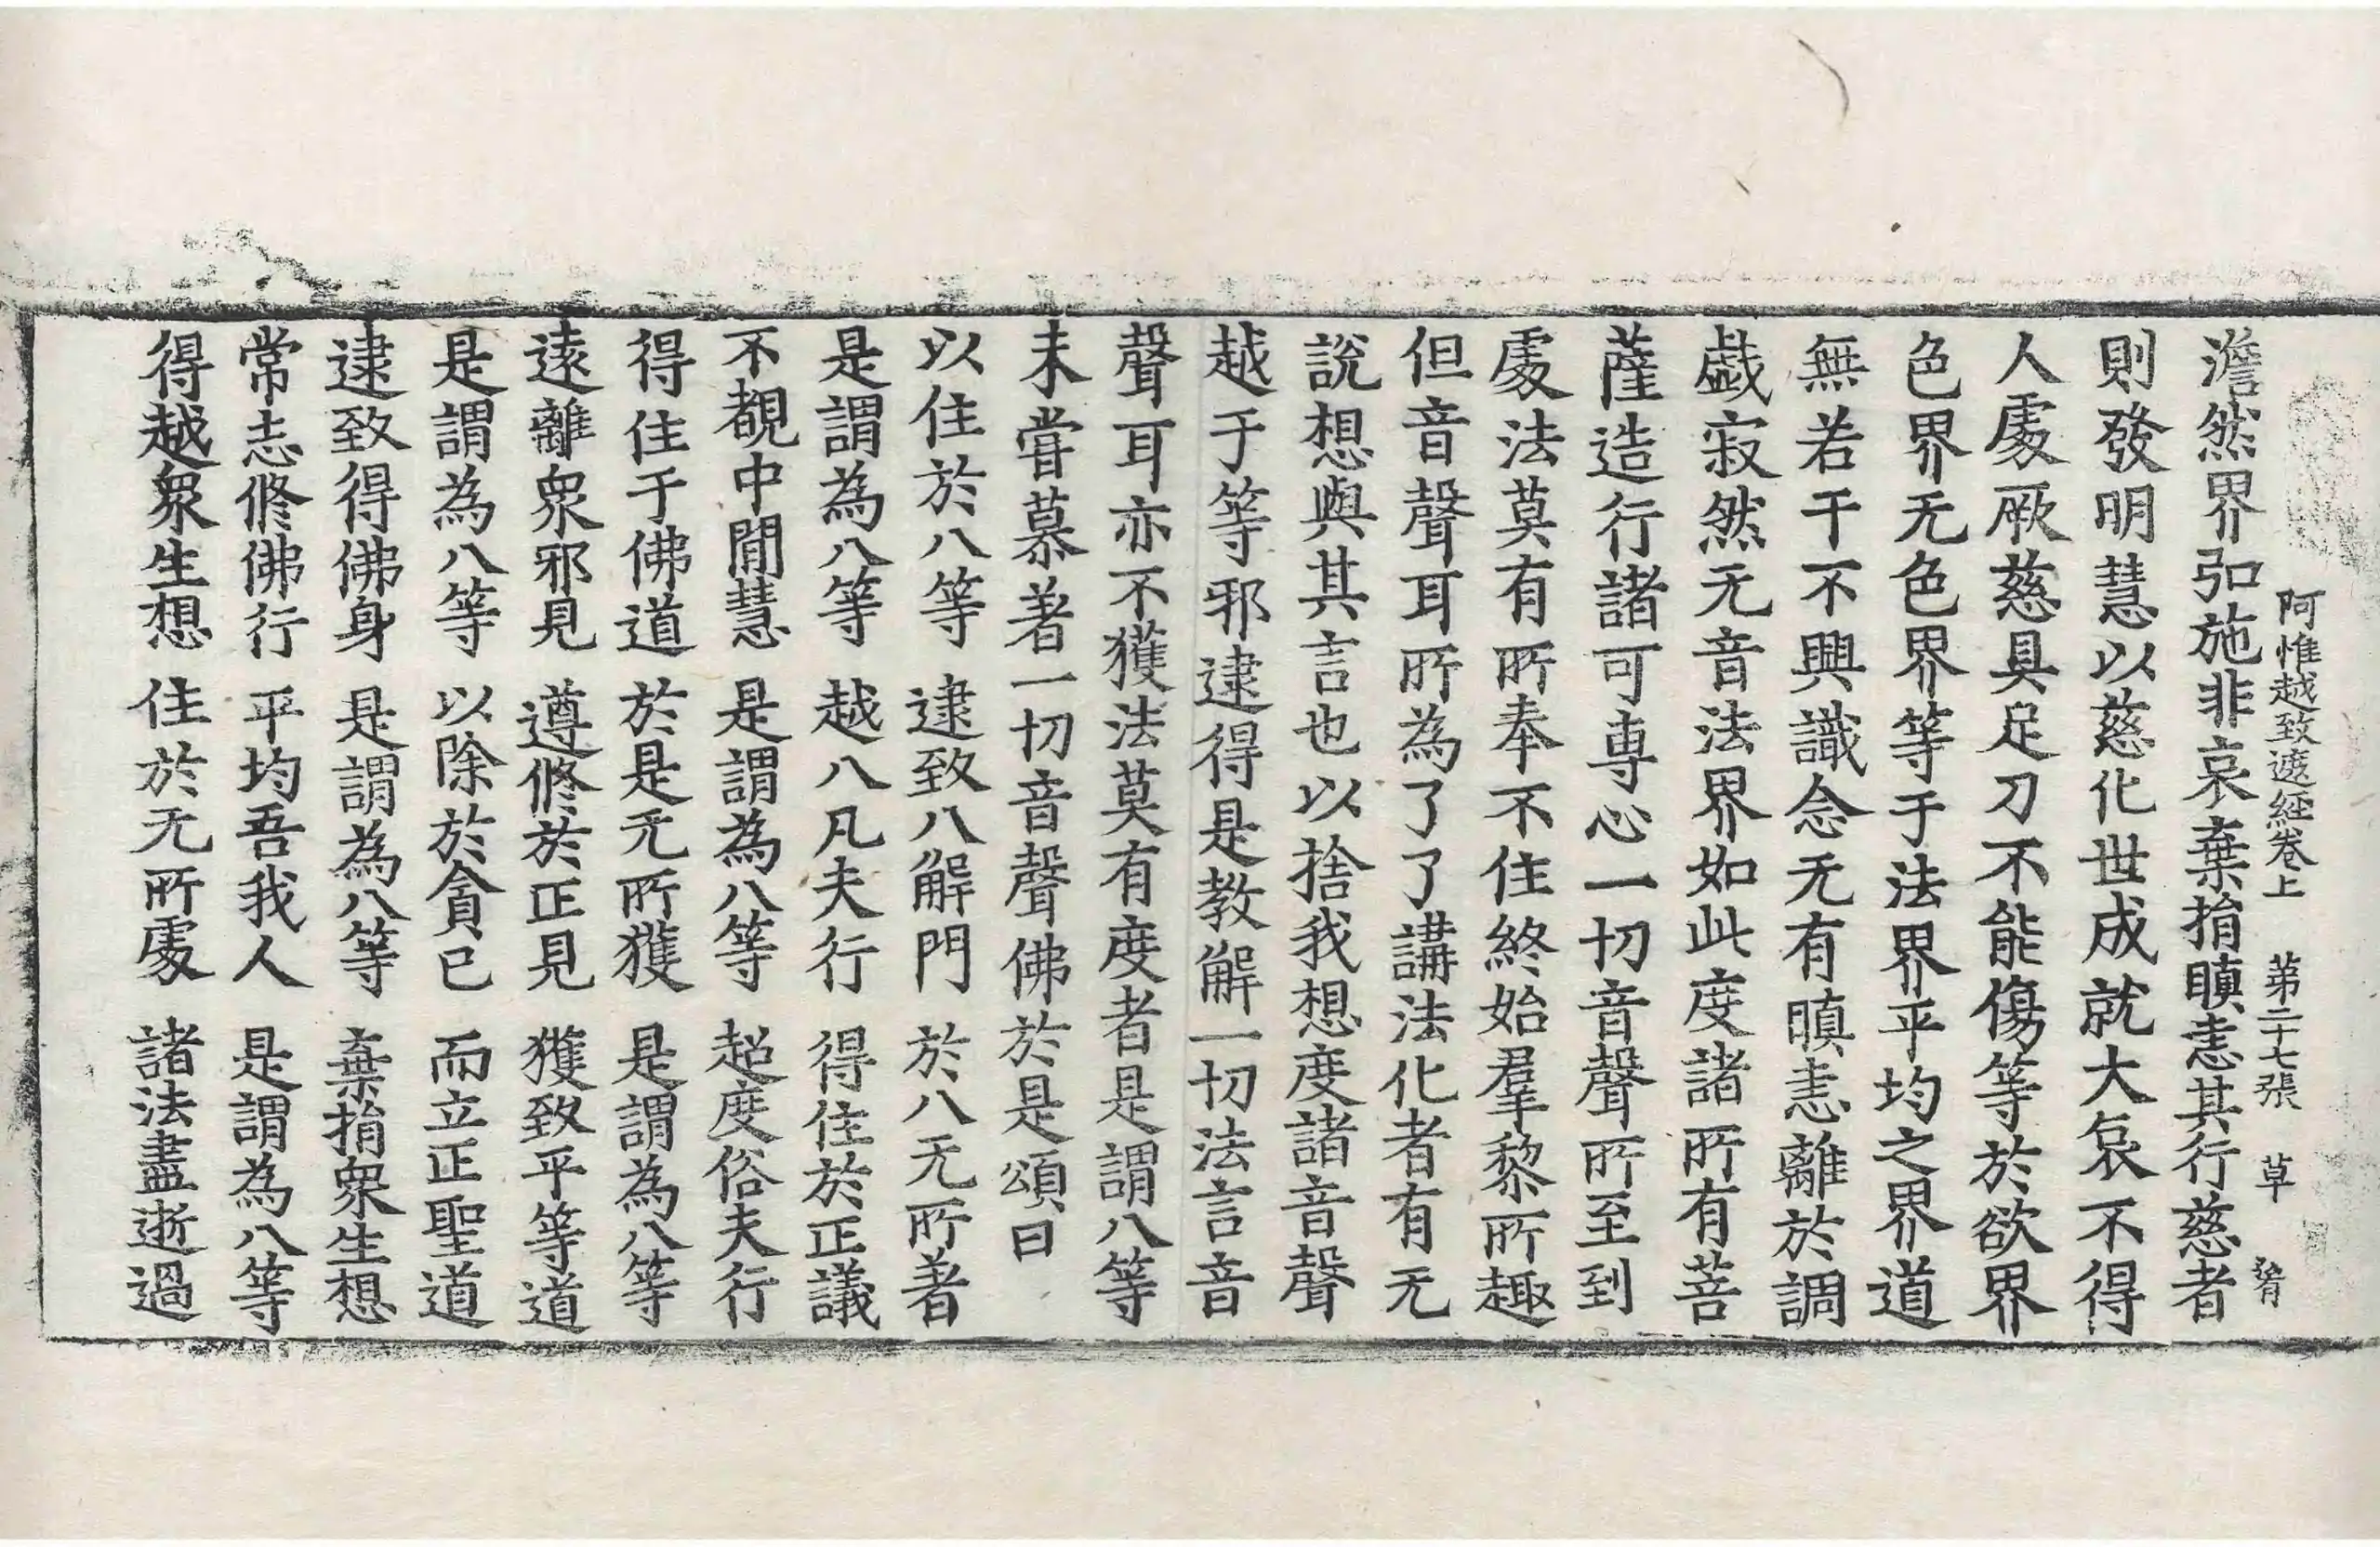 阿惟越致遮經卷上 第二十七張 草
澹然界弘施非哀棄捐瞋恚其行慈者
則發明慧以慈化世成就大哀不得
人處厥慈具足刀不能傷等於欲界
色界无色界等于法界平均之界道
無若干不興識念无有瞋恚離於調
戲寂然无音法界如此度諸所有菩
薩造行諸可專心一切音聲所至到
處法莫有所奉不住終始羣黎所趣
但音聲耳所為了了講法化者有无
說想與其言也以捨我想度諸音聲
越于等邪逮得是教解一切法言音
聲耳亦不獲法莫有度者是謂八等
未甞慕著一切音聲佛於是頌曰
以住於八等 逮致八解門 於八无所著
是謂為八等 越八凡夫行 得住於正議
不覩中閒慧 是謂為八等 超度俗夫行
得住于佛道 於是无所獲 是謂為八等
遠離衆邪見 遵修於正見 獲致平等道
是謂為八等 以除於貪已 而立正聖道
逮致得佛身 是謂為八等 棄捐衆生想
常志修佛行 平均吾我人 是謂為八等
得越衆生想 住於无所處 諸法盡逝過